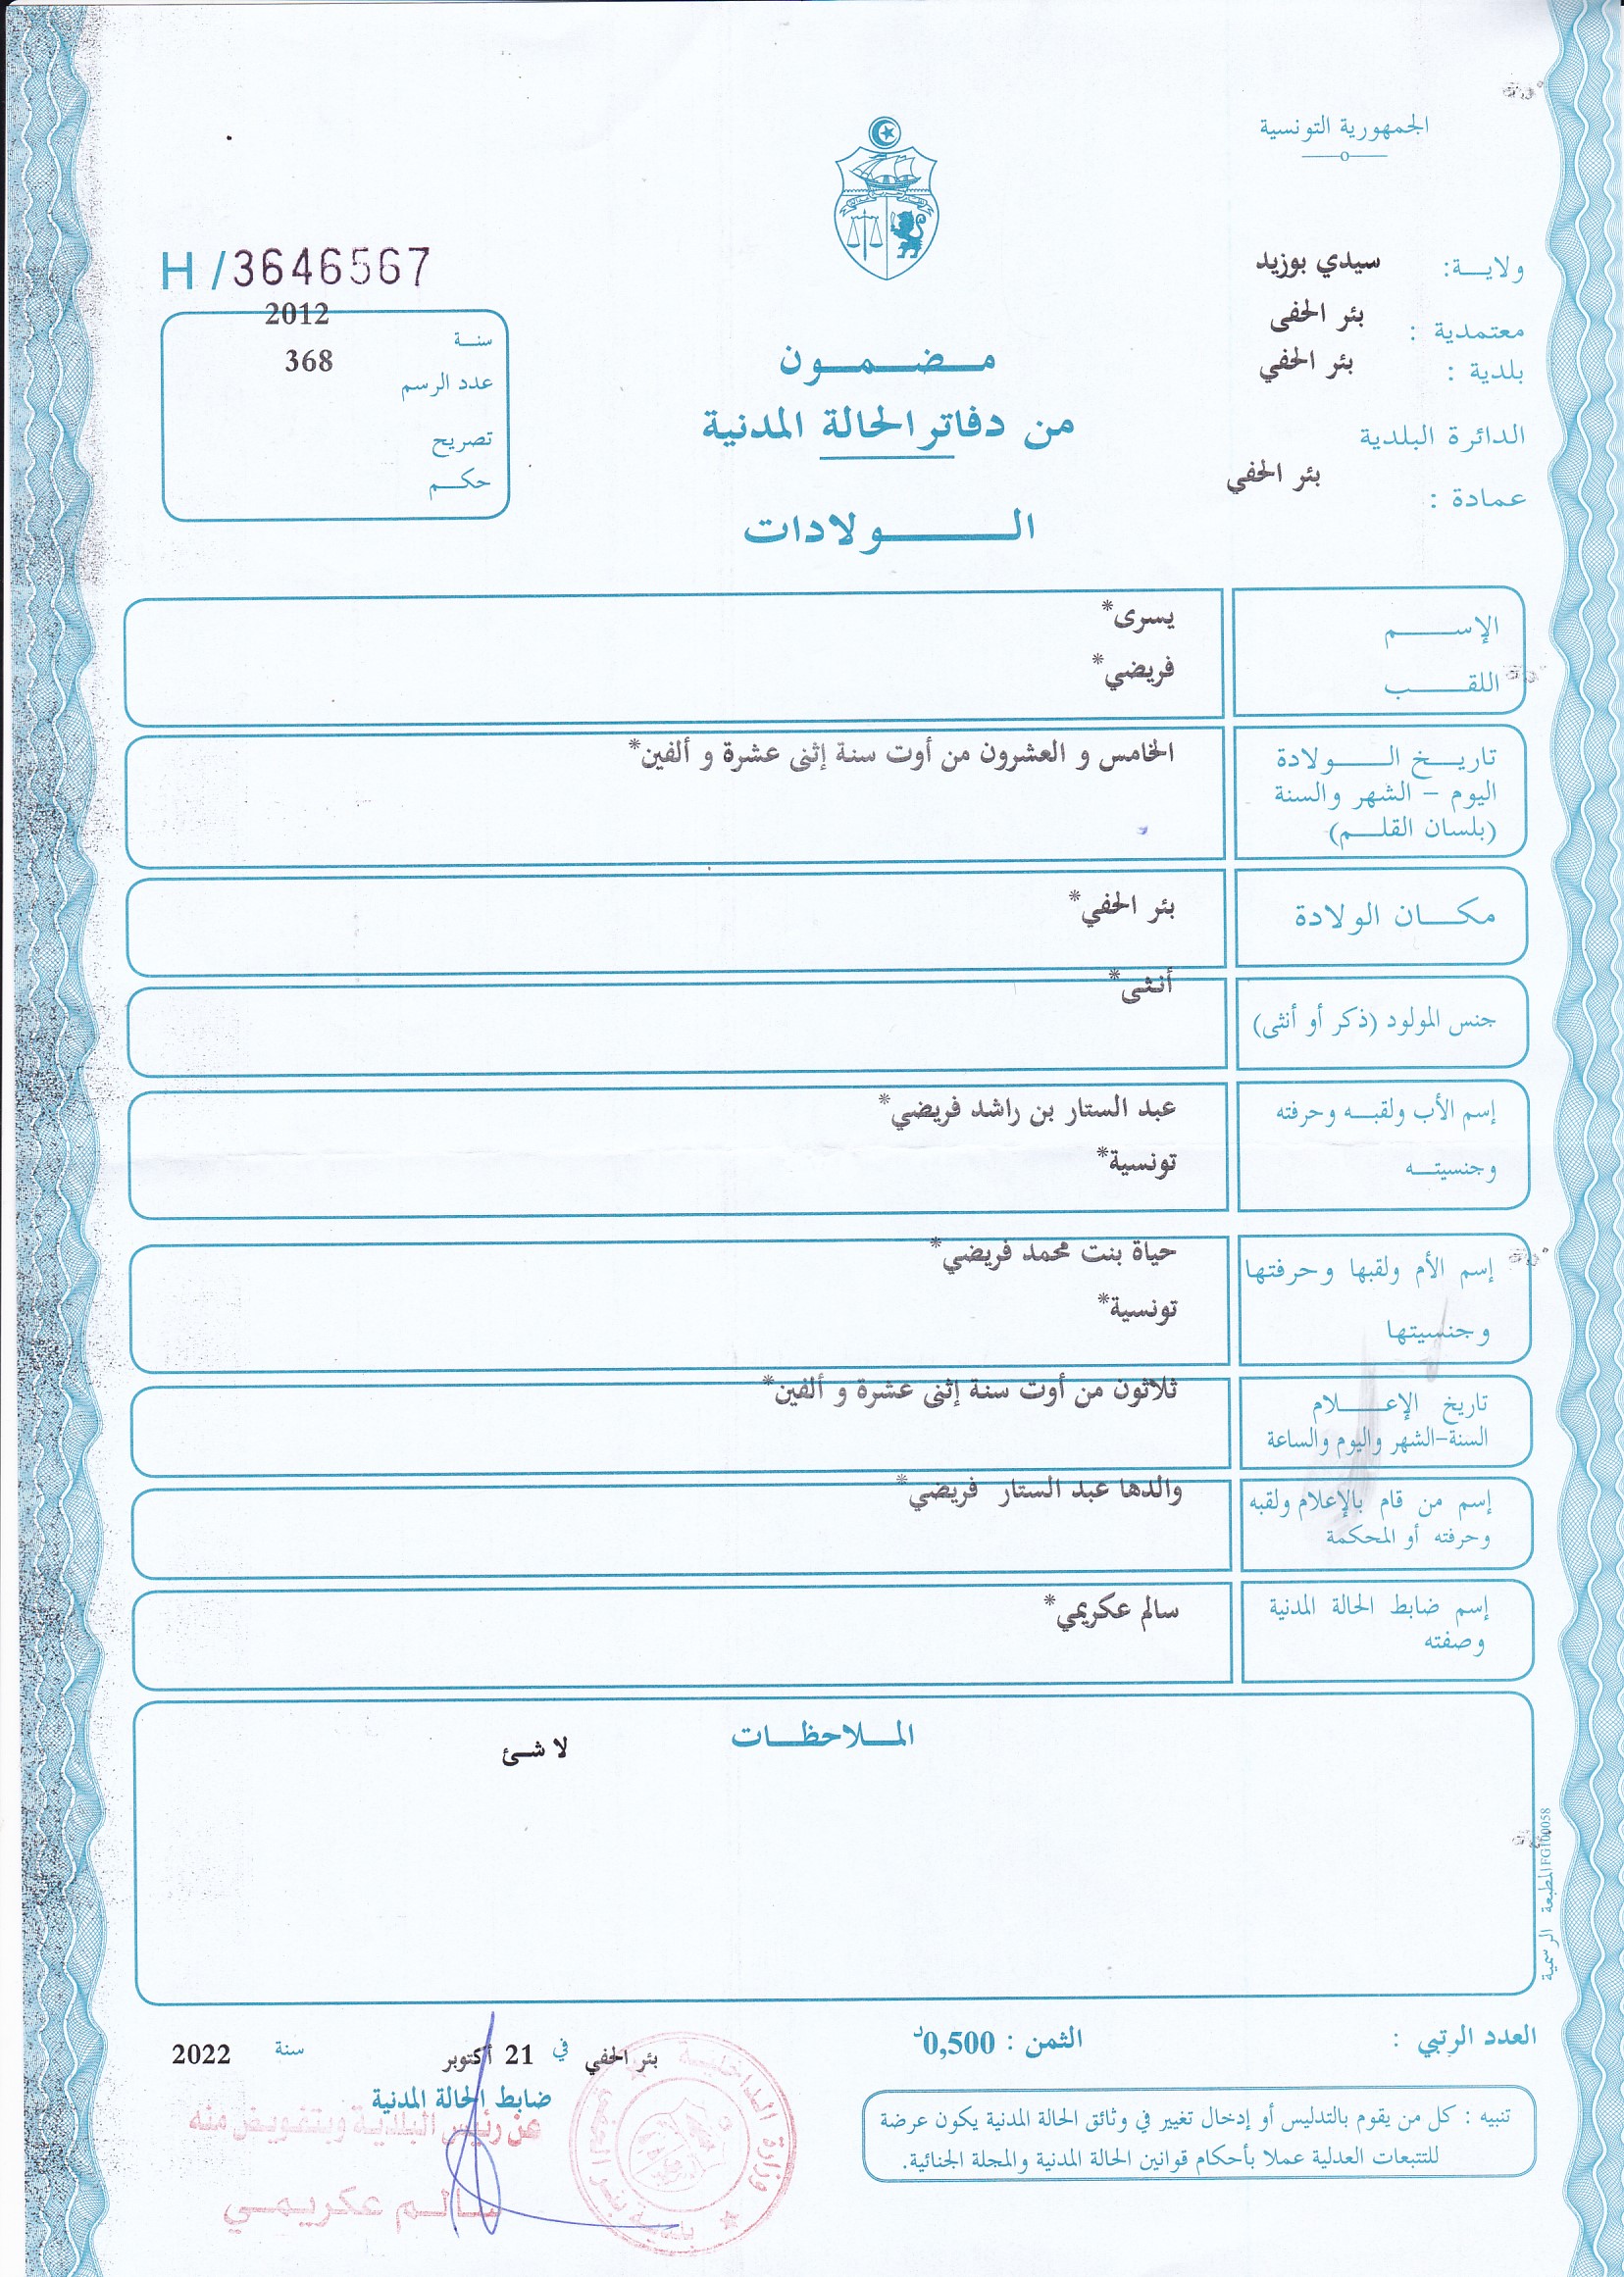 الجمهورية التونسية
ولايـــة: سيدي بوزيد
معتمدية : بئر الحفى
بلدية : بئر الحفي
الدائرة البلدية
عمادة : بئر الحفي
H / 3646567
سنـــة 2012
عدد الرسم 368
تصريح
حكـــم
مــضــمــون
من دفاتر الحالة المدنية
الـــــولادات
الإســـــم يسرى*
اللقـــــب فريضي*
تاريــخ الـــــولادة الخامس و العشرون من أوت سنة إثنى عشرة و ألفين*
اليوم – الشهر والسنة
(بلسان القلـــم)
مكـــان الولادة بئر الحفي*
جنس المولود (ذكر أو أنثى) أنثى*
إسم الأب ولقبـــه وحرفته عبد الستار بن راشد فريضي*
وجنسيتـــه تونسية*
إسم الأم ولقبها وحرفتها حياة بنت محمد فريضي*
وجنسيتها تونسية*
تاريخ الإعـــــلام ثلاثون من أوت سنة إثنى عشرة و ألفين*
السنة-الشهر واليوم والساعة
إسم من قام بالإعلام ولقبه والدها عبد الستار فريضي*
وحرفته أو المحكمة
إسم ضابط الحالة المدنية سالم عكريمي*
وصفته
الملاحظــات
لا شئ
المطبعة الرسمية FG100058
العدد الرتبي :
الثمن : 0,500د
بئر الحفي في 21 أكتوبر سنة 2022
ضابط الحالة المدنية
عن رئيس البلدية وبتفويض منه
سالم عكريمي
وزارة الداخلية
بلدية بئر الحفي
تنبيه : كل من يقوم بالتدليس أو إدخال تغيير في وثائق الحالة المدنية يكون عرضة
للتتبعات العدلية عملا بأحكام قوانين الحالة المدنية والمجلة الجنائية.